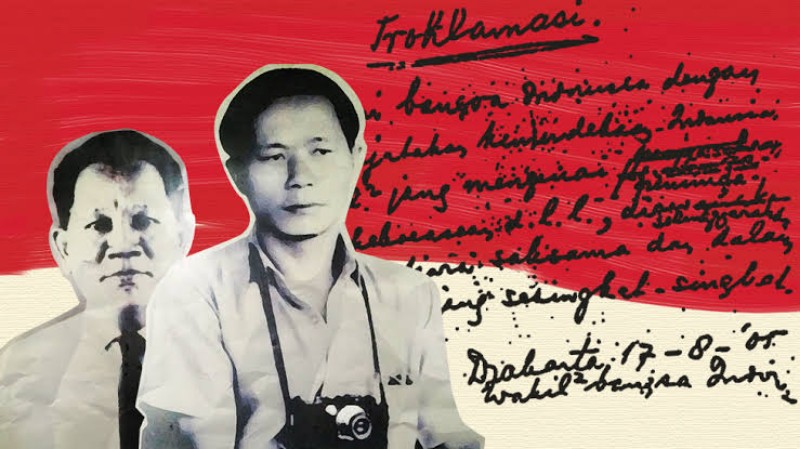 Proklamasi.
i bangsa Indonesia dengan
jatakan kemerdekaan Indonesia.
2 jang mengenai
d.l.l., diselenggarakan
tjara saksama dan dalam
jang sesingkat-singkat
Djakarta, 17-8-'05
Wakil2 bangsa Indon